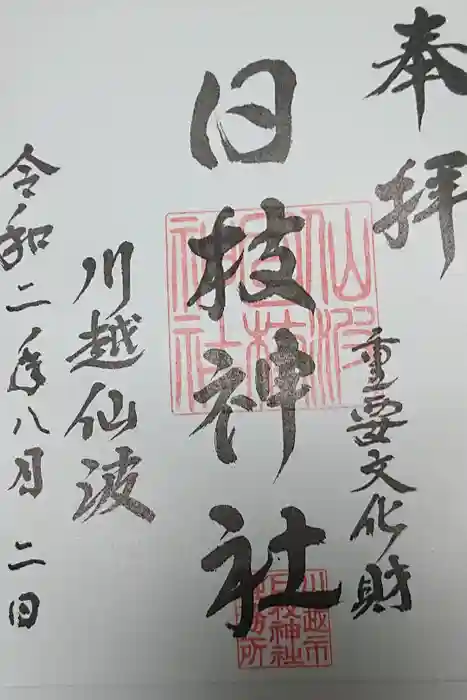 奉拝
重要文化財
日枝神社
川越仙波
令和二年八月二日
仙波日枝神社
川越市日枝神社社務所